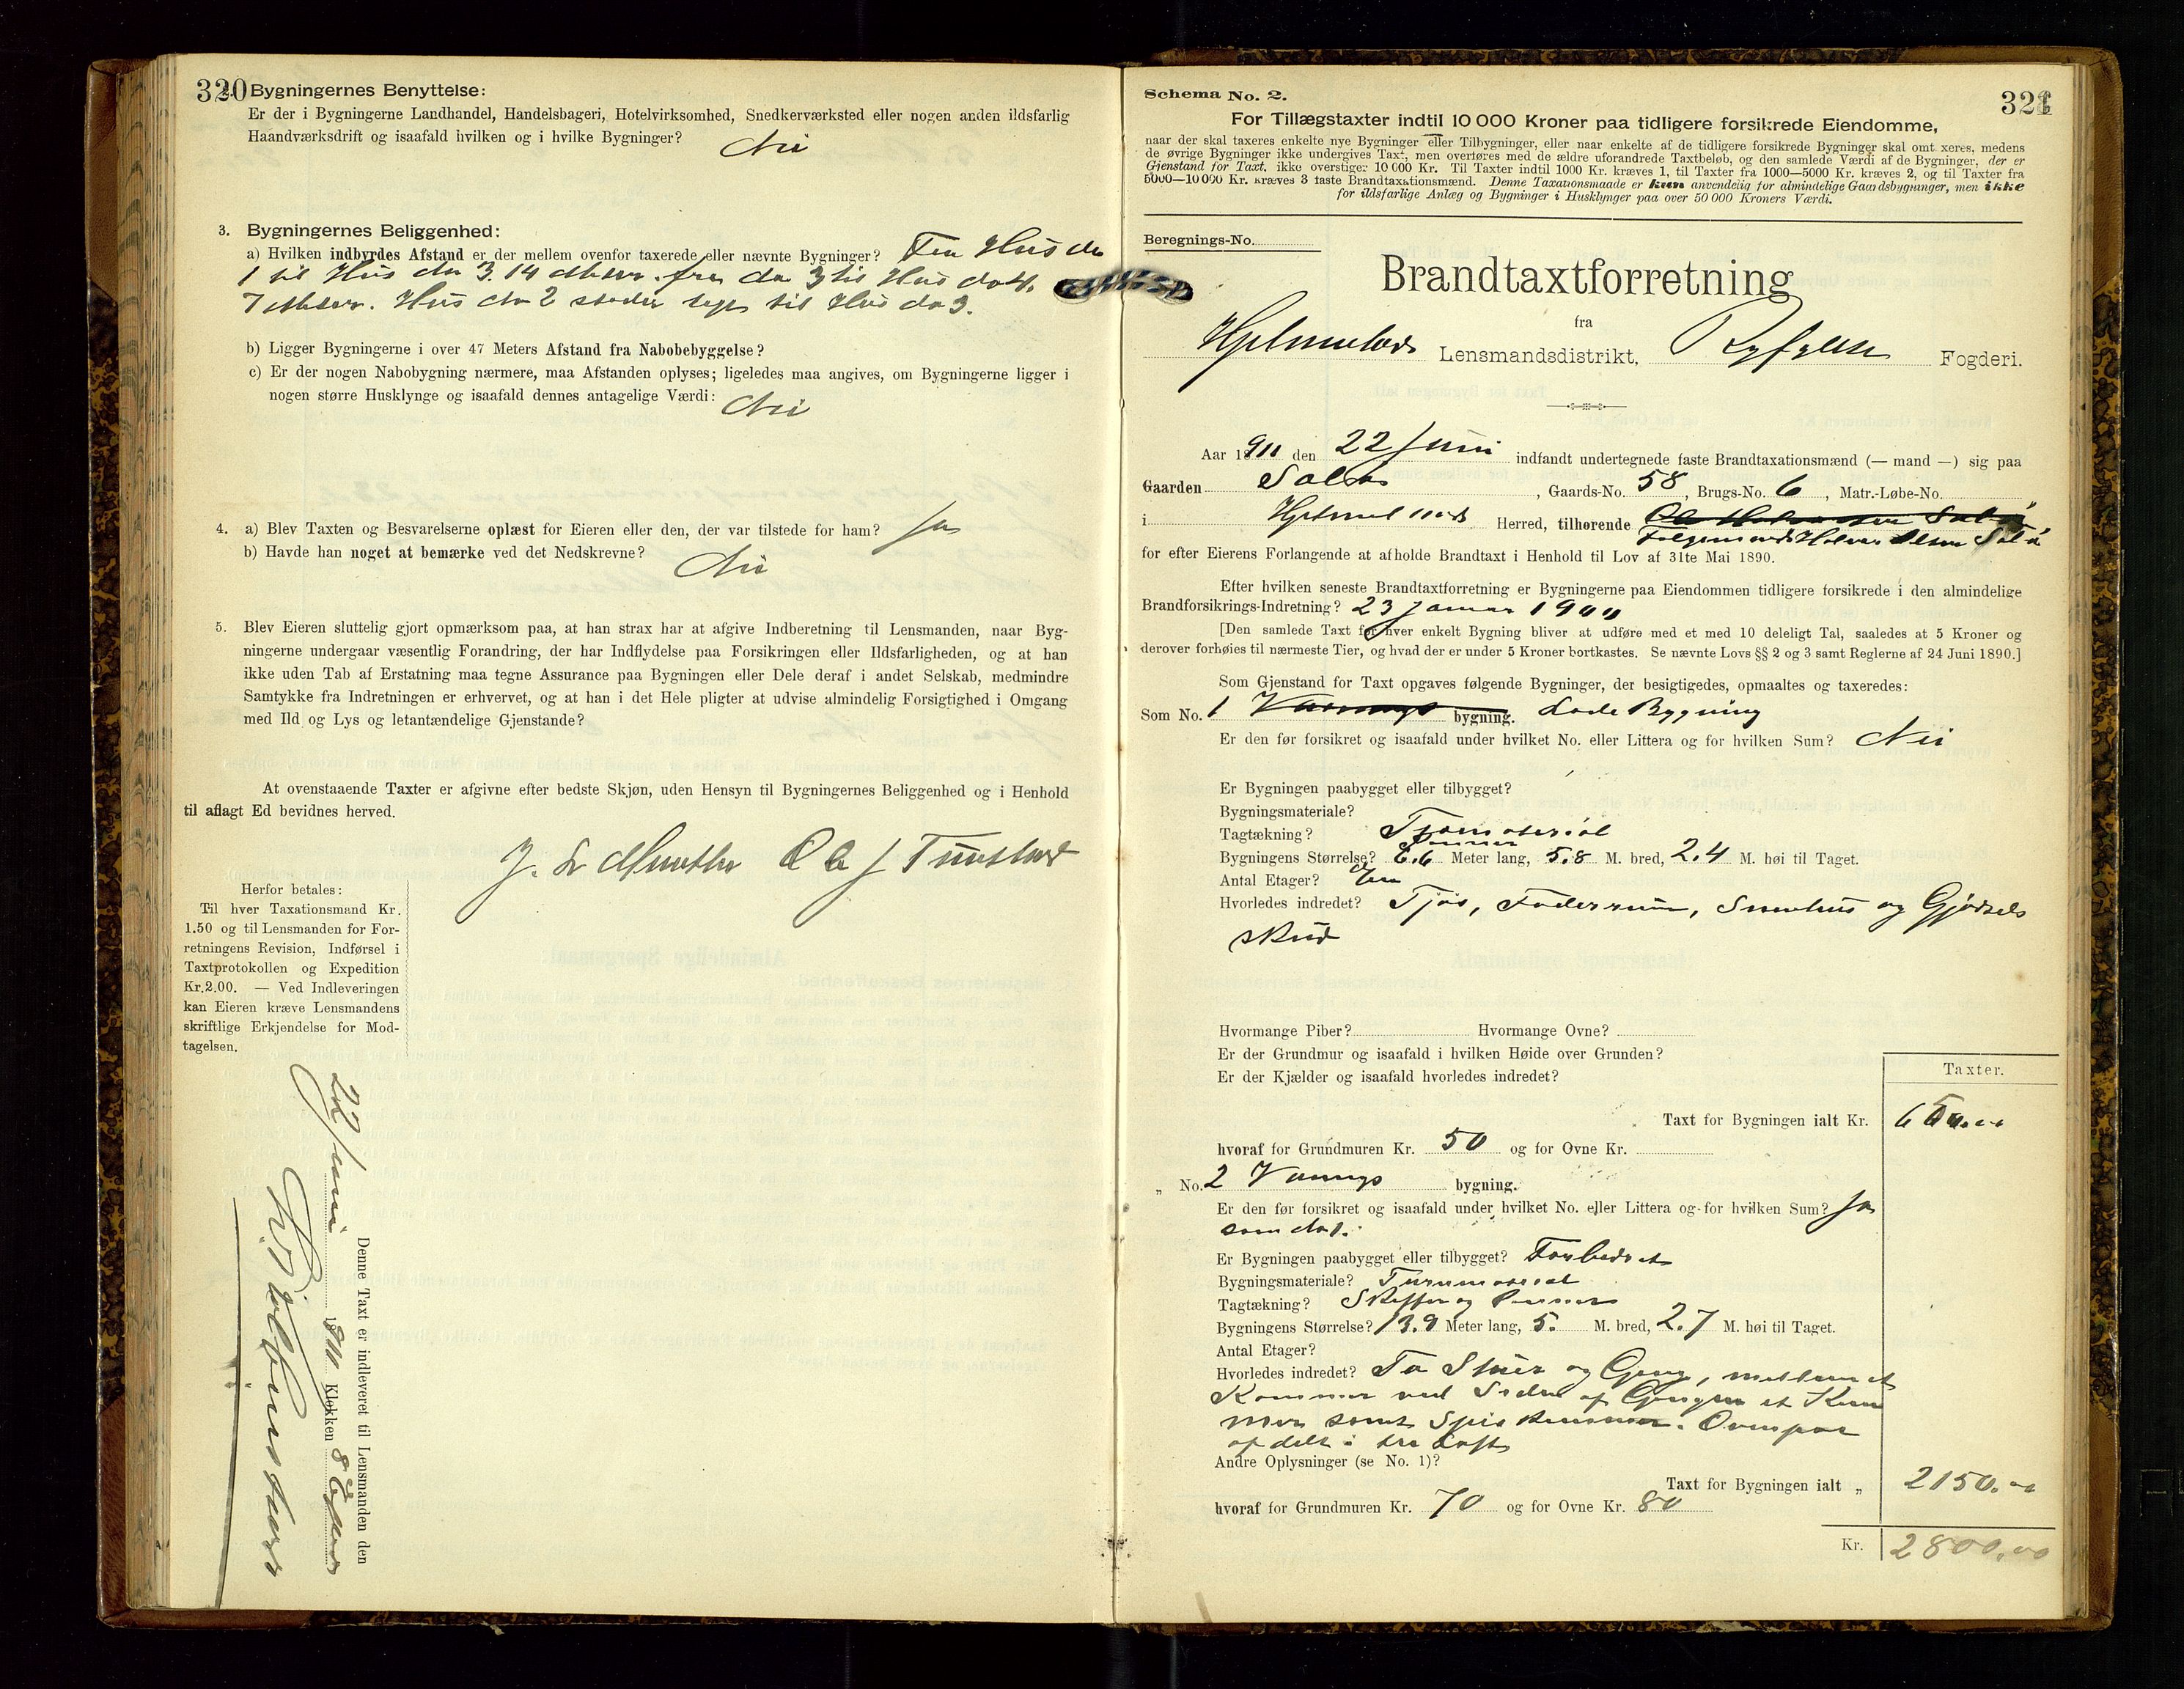 320
Bygningernes Benyttelse:
Er der i Bygningerne Landhandel, Handelsbageri, Hotelvirksomhed, Snedkerværksted eller nogen anden ildsfarlig
Haandværksdrift og isaafald hvilken og i hvilke Bygninger? Nei
3. Bygningernes Beliggenhed:
a) Hvilken indbyrdes Afstand er der mellem ovenfor taxerede eller nævnte Bygninger? Fra Hus No
1 til Hus No 3. 14 Meter. fra No 3 til Hus No 4.
7 Meter. Hus No 2 til Hus No 3.
b) Ligger Bygningerne i over 47 Meters Afstand fra Nabobebyggelse?
c) Er der nogen Nabobygning nærmere, maa Afstanden oplyses; ligeledes maa angives, om Bygningerne ligger i
nogen større Husklynge og isaafald dennes antagelige Værdi: Nei
4. a) Blev Taxten og Besvarelserne oplæst for Eieren eller den, der var tilstede for ham? Ja
b) Havde han noget at bemærke ved det Nedskrevne? Nei
5. Blev Eieren sluttelig gjort opmærksom paa, at han strax har at afgive Indberetning til Lensmanden, naar Byg-
ningerne undergaar væsentlig Forandring, der har Indflydelse paa Forsikringen eller Ildsfarligheden, og at han
ikke uden Tab af Erstatning maa tegne Assurance paa Bygningen eller Dele deraf i andet Selskab, medmindre
Samtykke fra Indretningen er erhvervet, og at han i det Hele pligter at udvise almindelig Forsigtighed i Omgang
med Ild og Lys og letantændelige Gjenstande?
At ovenstaaende Taxter er afgivne efter bedste Skjøn, uden Hensyn til Bygningernes Beliggenhed og i Henhold
til aflagt Ed bevidnes herved.
Herfor betales:
Til hver Taxationsmand Kr.
1.50 og til Lensmanden for For-
retningens Revision, Indførsel i
Taxtprotokollen og Expedition
Kr.2.00. — Ved Indleveringen
kan Eieren kræve Lensmandens
skriftlige Erkjendelse for Mod-
tagelsen.
Denne Taxt er indleveret til Lensmanden den
22 Juni 1910 Klokken 8
Schema No. 2.
321
For Tillægstaxter indtil 10 000 Kroner paa tidligere forsikrede Eiendomme,
naar der skal taxeres enkelte nye Bygninger eller Tilbygninger, eller naar enkelte af de tidligere forsikrede Bygninger skal omt xeres, medens
de øvrige Bygninger ikke undergives Taxt, men overføres med de ældre uforandrede Taxtbeløb, og den samlede Værdi af de Bygninger, der er
Gjenstand for Taxt, ikke overstiger 10 000 Kr. Til Taxter indtil 1000 Kr. kræves 1, til Taxter fra 1000—5000 Kr. kræves 2, og til Taxter fra
5000—10 000 Kr. kræves 3 faste Brandtaxationsmænd. Denne Taxationsmaade er kun anvendelig for almindelige Gaardsbygninger, men ikke
for ildsfarlige Anlæg og Bygninger i Husklynger paa over 50 000 Kroners Værdi.
Beregnings-No.
Brandtaxtforretning
fra
Hjelmelands Lensmandsdistrikt, Ryfylke Fogderi.
Aar 1910 den 22 Juni indfandt undertegnede faste Brandtaxationsmænd (— mand —) sig paa
Gaarden , Gaards-No. 58, Brugs-No. 6, Matr.-Løbe-No.
i Hjelmelands Herred, tilhørende
for efter Eierens Forlangende at afholde Brandtaxt i Henhold til Lov af 31te Mai 1890.
Efter hvilken seneste Brandtaxtforretning er Bygningerne paa Eiendommen tidligere forsikrede i den almindelige
Brandforsikrings-Indretning? 23 Januar 1900
[Den samlede Taxt for hver enkelt Bygning bliver at udføre med et med 10 deleligt Tal, saaledes at 5 Kroner og
derover forhøies til nærmeste Tier, og hvad der er under 5 Kroner bortkastes. Se nævnte Lovs §§ 2 og 3 samt Reglerne af 24 Juni 1890.]
Som Gjenstand for Taxt opgaves følgende Bygninger, der besigtigedes, opmaaltes og taxeredes:
Som No. 1 Vaanings bygning. Lade Bygning
Er den før forsikret og isaafald under hvilket No. eller Littera og for hvilken Sum? Nei
Er Bygningen paabygget eller tilbygget?
Bygningsmateriale?
Tagtækning?
Bygningens Størrelse? 6.6 Meter lang, 5.8 M. bred, 2.4 M. høi til Taget.
Antal Etager?
Hvorledes indredet? Fjøs, Foderrum, Smuhus og Gjødsels
skur
Hvormange Piber? Hvormange Ovne?
Er der Grundmur og isaafald i hvilken Høide over Grunden?
Er der Kjælder og isaafald hvorledes indredet?
Taxter.
Taxt for Bygningen ialt Kr. 650.00
hvoraf for Grundmuren Kr. 50 og for Ovne Kr.
„ No. 2 Vaanings bygning.
Er den før forsikret og isaafald under hvilket No. eller Littera og for hvilken Sum? Ja
som No 1.
Er Bygningen paabygget eller tilbygget? Forbedret
Bygningsmateriale?
Tagtækning? Skiffer og Panner
Bygningens Størrelse? 13.9 Meter lang, 5. M. bred, 2.7 M. høi til Taget.
Antal Etager?
Hvorledes indredet? To Stuer og Gang, mellem et
Kammer ved Siden af Gangen et Kam
mer samt Spiskammer. Ovenpaa
afdelt i tre Loft
Andre Oplysninger (se No. 1)?
Taxt for Bygningen ialt „ 2150.00
hvoraf for Grundmuren Kr. 70 og for Ovne Kr. 80
Kr. 2800.00